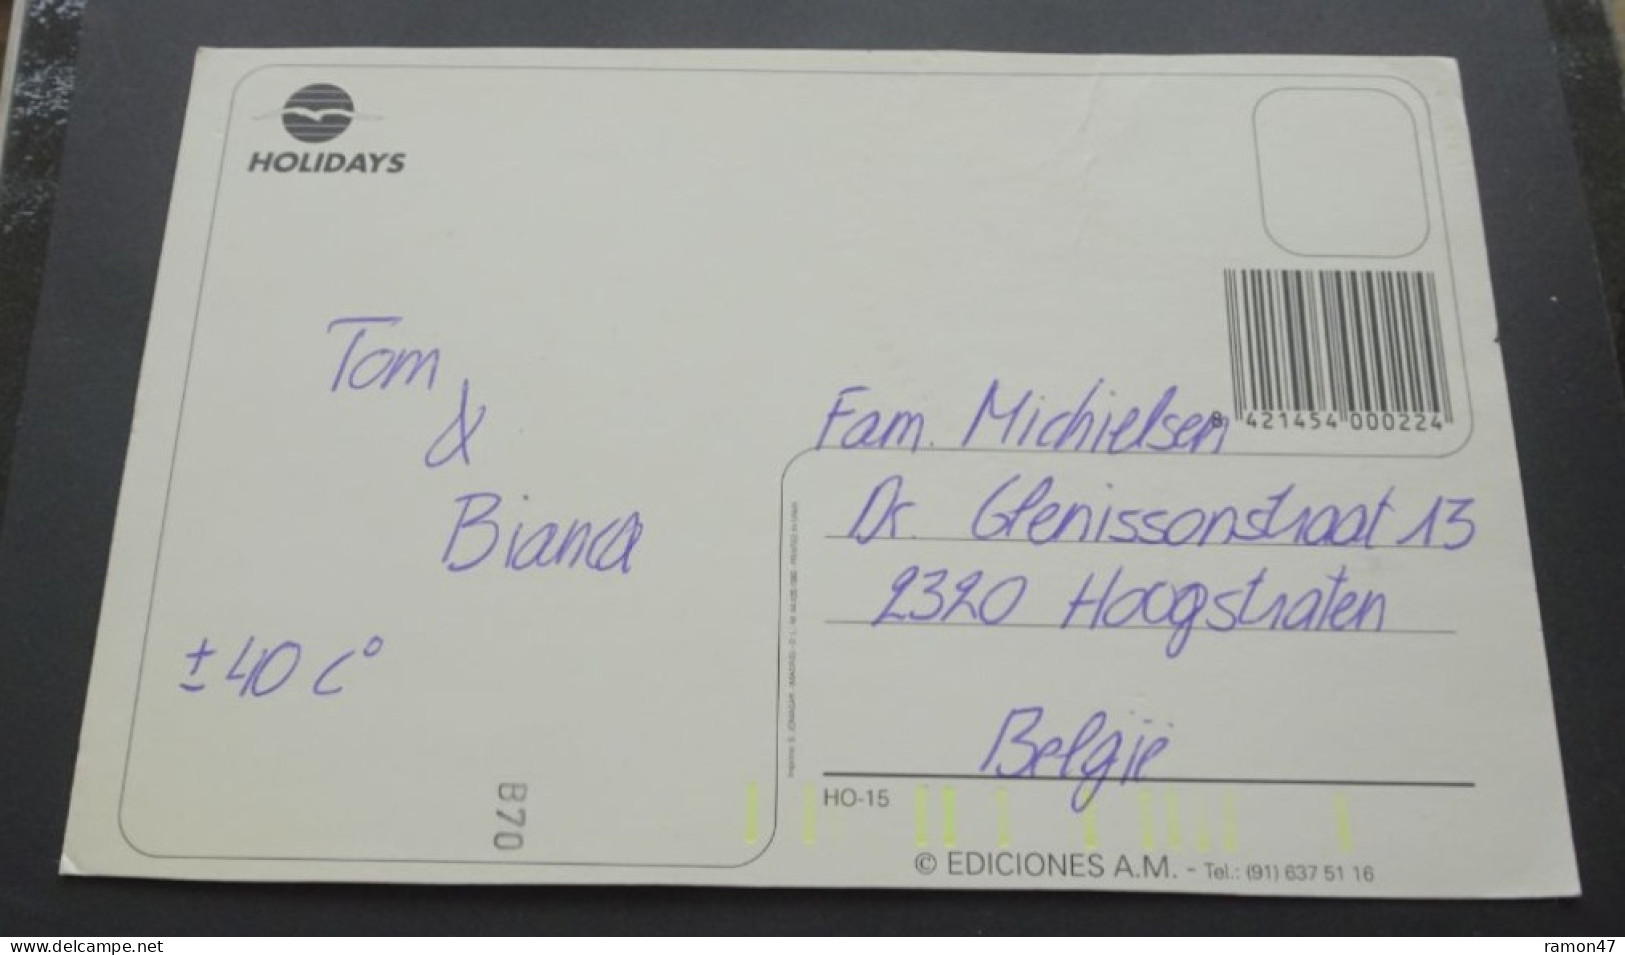 HOLIDAYS
Tom
&
Bianca
± 40 C°
B70
Fam. Michielsen
Dr. Glenissonstraat 13
2320 Hoogstraten
België
8 421454 000224
HO-15
© EDICIONES A.M. - Tel.: (91) 637 51 16
www.delcampe.net
ramon47